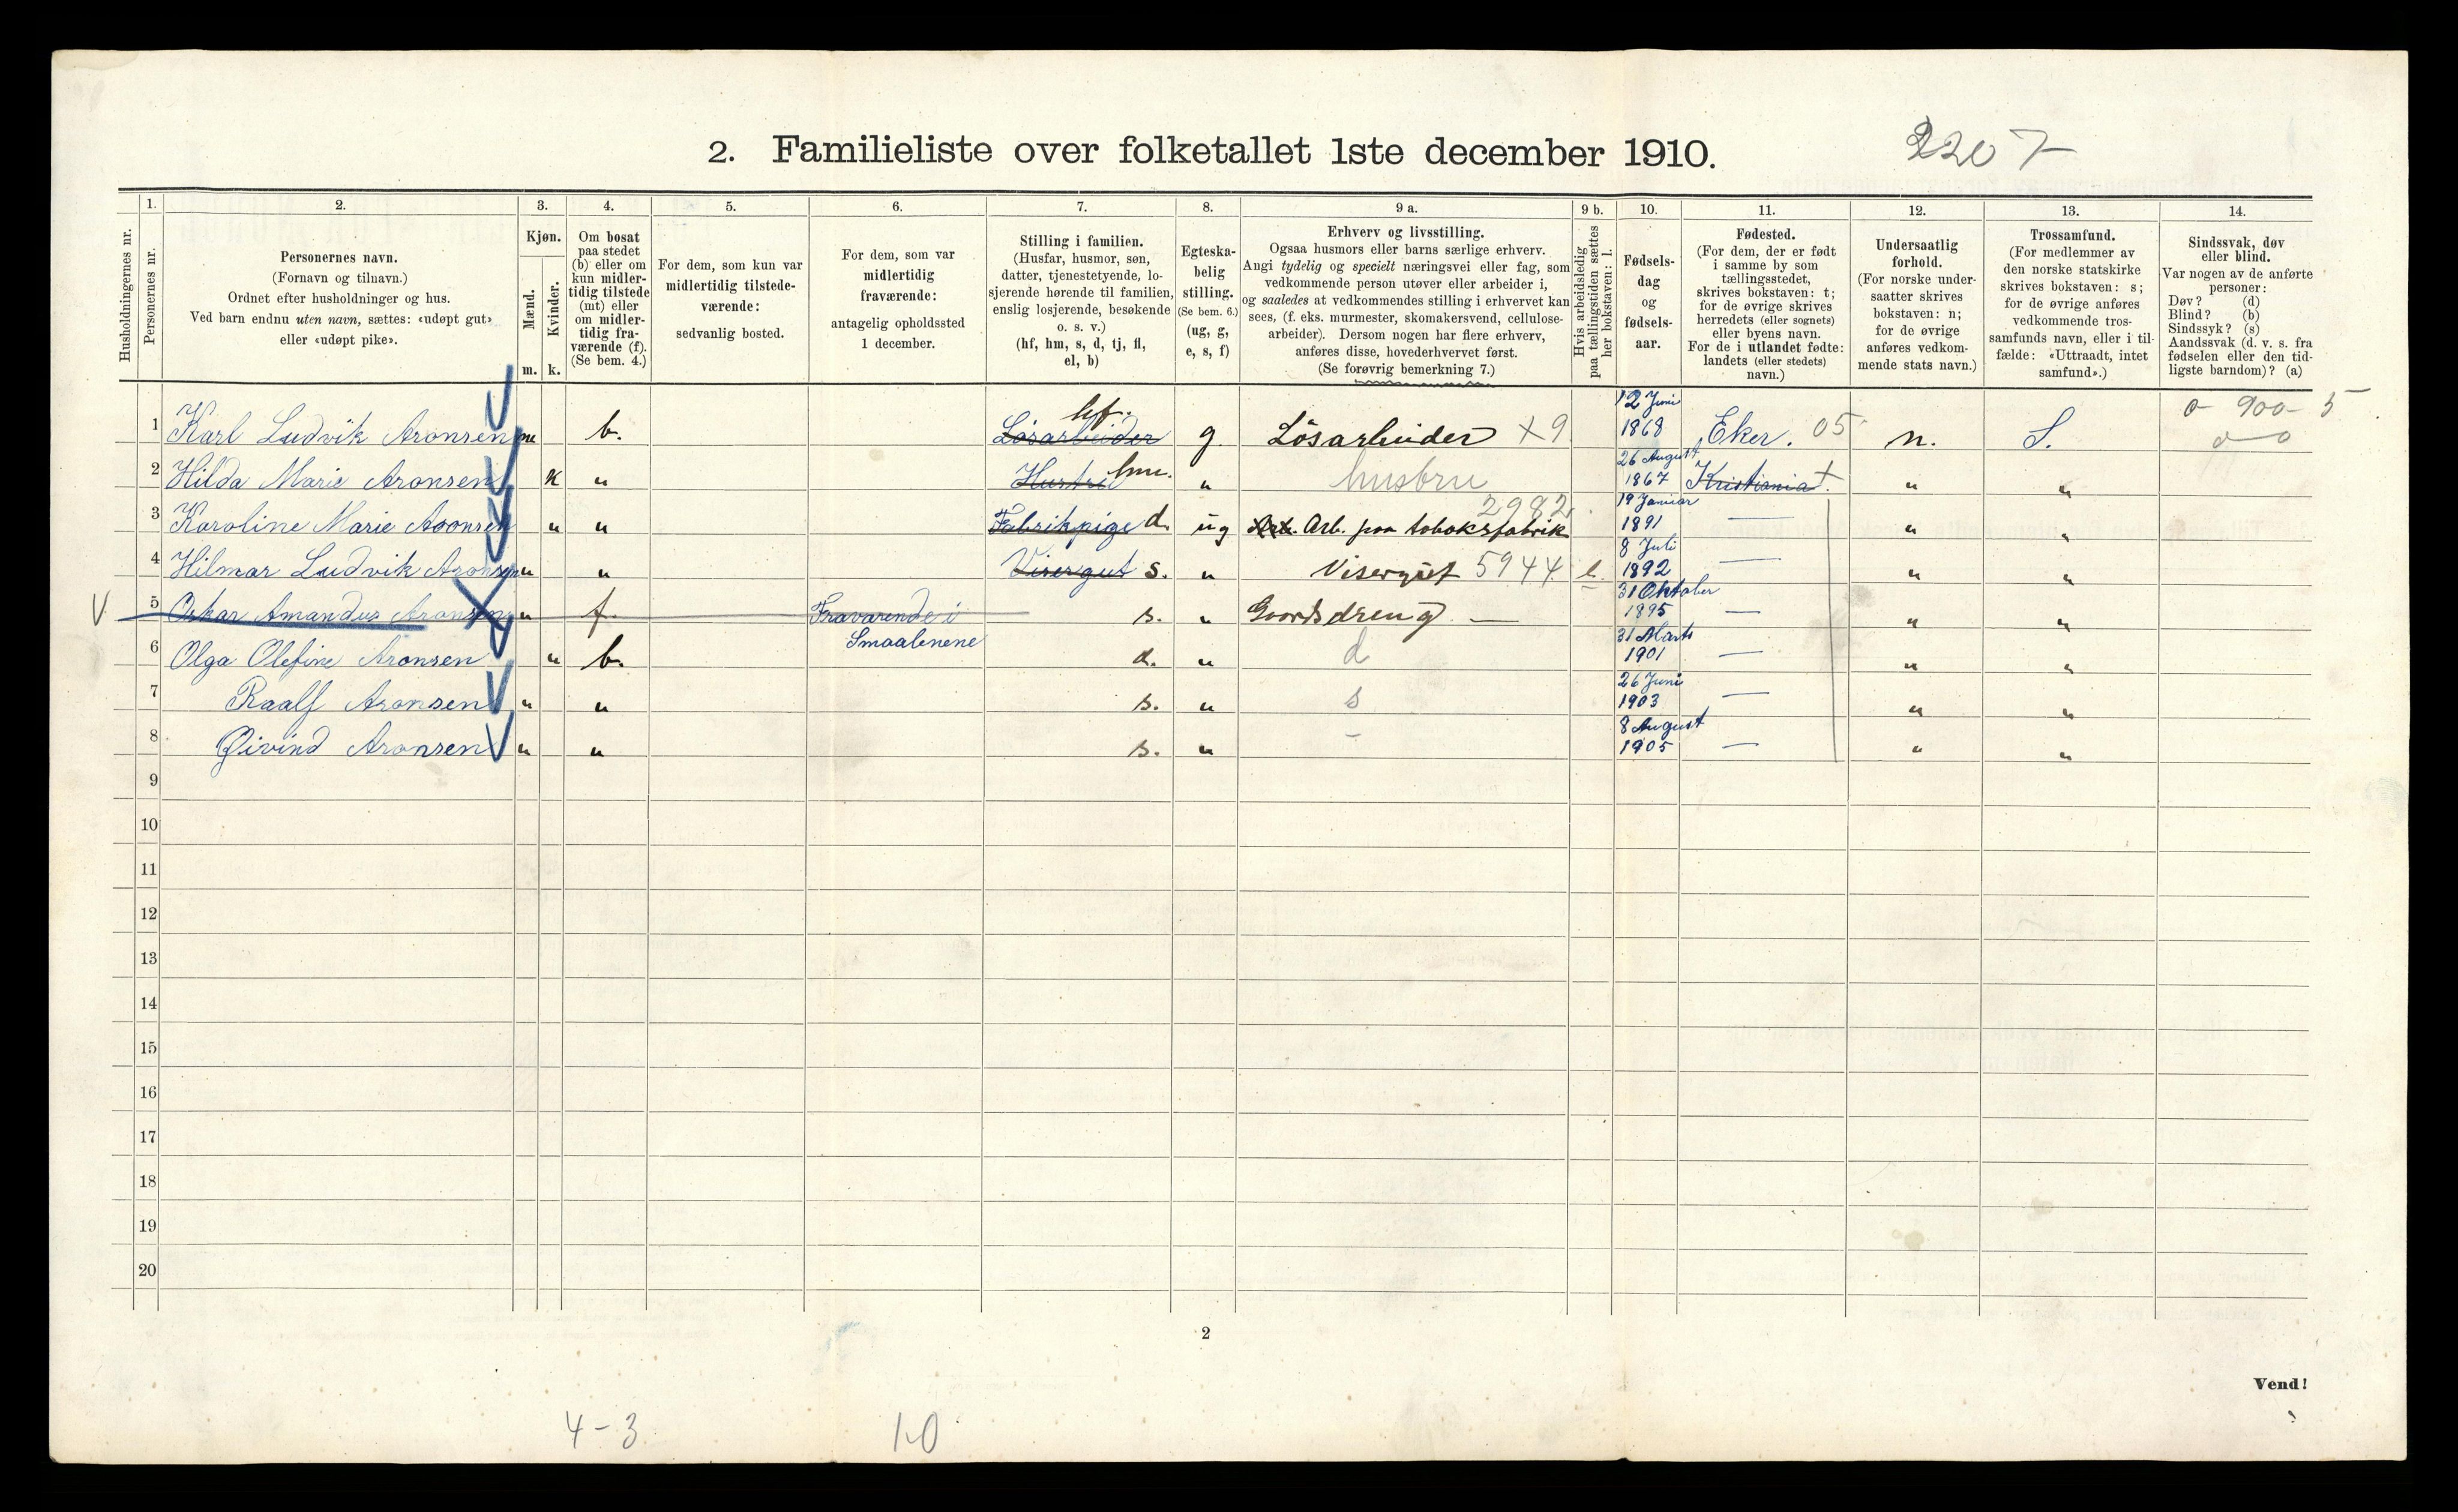 2. Familieliste over folketallet 1ste december 1910. 2207
1. 2. 3. 4. 5. 6. 7. 8. 9 a. 9 b. 10. 11. 12. 13. 14.
Husholdningernes nr.
Personernes nr.
Personernes navn.
(Fornavn og tilnavn.)
Ordnet efter husholdninger og hus.
Ved barn endnu uten navn, sættes: «udøpt gut»
eller «udøpt pike».
Kjøn.
Mænd.
Kvinder.
m. k.
Om bosat
paa stedet
(b) eller om
kun midler-
tidig tilstede
(mt) eller
om midler-
tidig fra-
værende (f).
(Se bem. 4.)
For dem, som kun var
midlertidig tilstede-
værende:
sedvanlig bosted.
For dem, som var
midlertidig
fraværende:
antagelig opholdssted
1 december.
Stilling i familien.
(Husfar, husmor, søn,
datter, tjenestetyende, lo-
sjerende hørende til familien,
enslig losjerende, besøkende
o. s. v.)
(hf, hm, s, d, tj, fl,
el, b)
Egteska-
belig
stilling.
(Se bem. 6.)
(ug, g,
e, s, f)
Erhverv og livsstilling.
Ogsaa husmors eller barns særlige erhverv.
Angi tydelig og specielt næringsvei eller fag, som
vedkommende person utøver eller arbeider i,
og saaledes at vedkommendes stilling i erhvervet kan
sees, (f. eks. murmester, skomakersvend, cellulose-
arbeider). Dersom nogen har flere erhverv,
anføres disse, hovederhvervet først.
(Se forøvrig bemerkning 7.)
Hvis arbeidsledig
paa tællingstiden sættes
her bokstaven: l.
Fødsels-
dag
og
fødsels-
aar.
Fødested.
(For dem, der er født
i samme by som
tællingsstedet,
skrives bokstaven: t;
for de øvrige skrives
herredets (eller sognets)
eller byens navn.
For de i utlandet fødte:
landets (eller stedets)
navn.)
Undersaatlig
forhold.
(For norske under-
saatter skrives
bokstaven: n;
for de øvrige
anføres vedkom-
mende stats navn.)
Trossamfund.
(For medlemmer av
den norske statskirke
skrives bokstaven: s;
for de øvrige anføres
vedkommende tros-
samfunds navn, eller i til-
fælde: «Uttraadt, intet
samfund».)
Sindssvak, døv
eller blind.
Var nogen av de anførte
personer:
Døv? (d)
Blind? (b)
Sindssyk? (s)
Aandssvak (d. v. s. fra
fødselen eller den tid-
ligste barndom)? (a)
hf. 12 Juni 0 - 900 - 5
1 Karl Ludvik Aronsen m b. Løsarbeider g. Løsarbeider X9 1868 Eker. 05 n. S. 0-0
26 August
2 Hilda Marie Aronsen k " Hustru hm. " husbru 1867 Kristiania t. " "
2982 19 Januar
3 Karoline Marie Aronsen " " Fabrikpige d. ug Arb. Arb. paa tobaksfabrik 1891 — " "
8 Juli
4 Hilmar Ludvik Aronsen " " Visergut s. " Visergut 5944 l. 1892 — " "
31 Oktober
V 5 Oskar Amandus Aronsen " f. Fraværende i s. " Gaardsdreng — 1895 — " "
Smaalenene 31 Marts
6 Olga Olefine Aronsen " b. d. " d 1901 — " "
26 Juni
7 Raalf Aronsen " " s. " s 1903 — " "
8 August
8 Øivind Aronsen " " s. " - 1905 — " "
9
10
11
12
13
14
15
16
17
18
19
20
2
Vend!
4-3 1-0